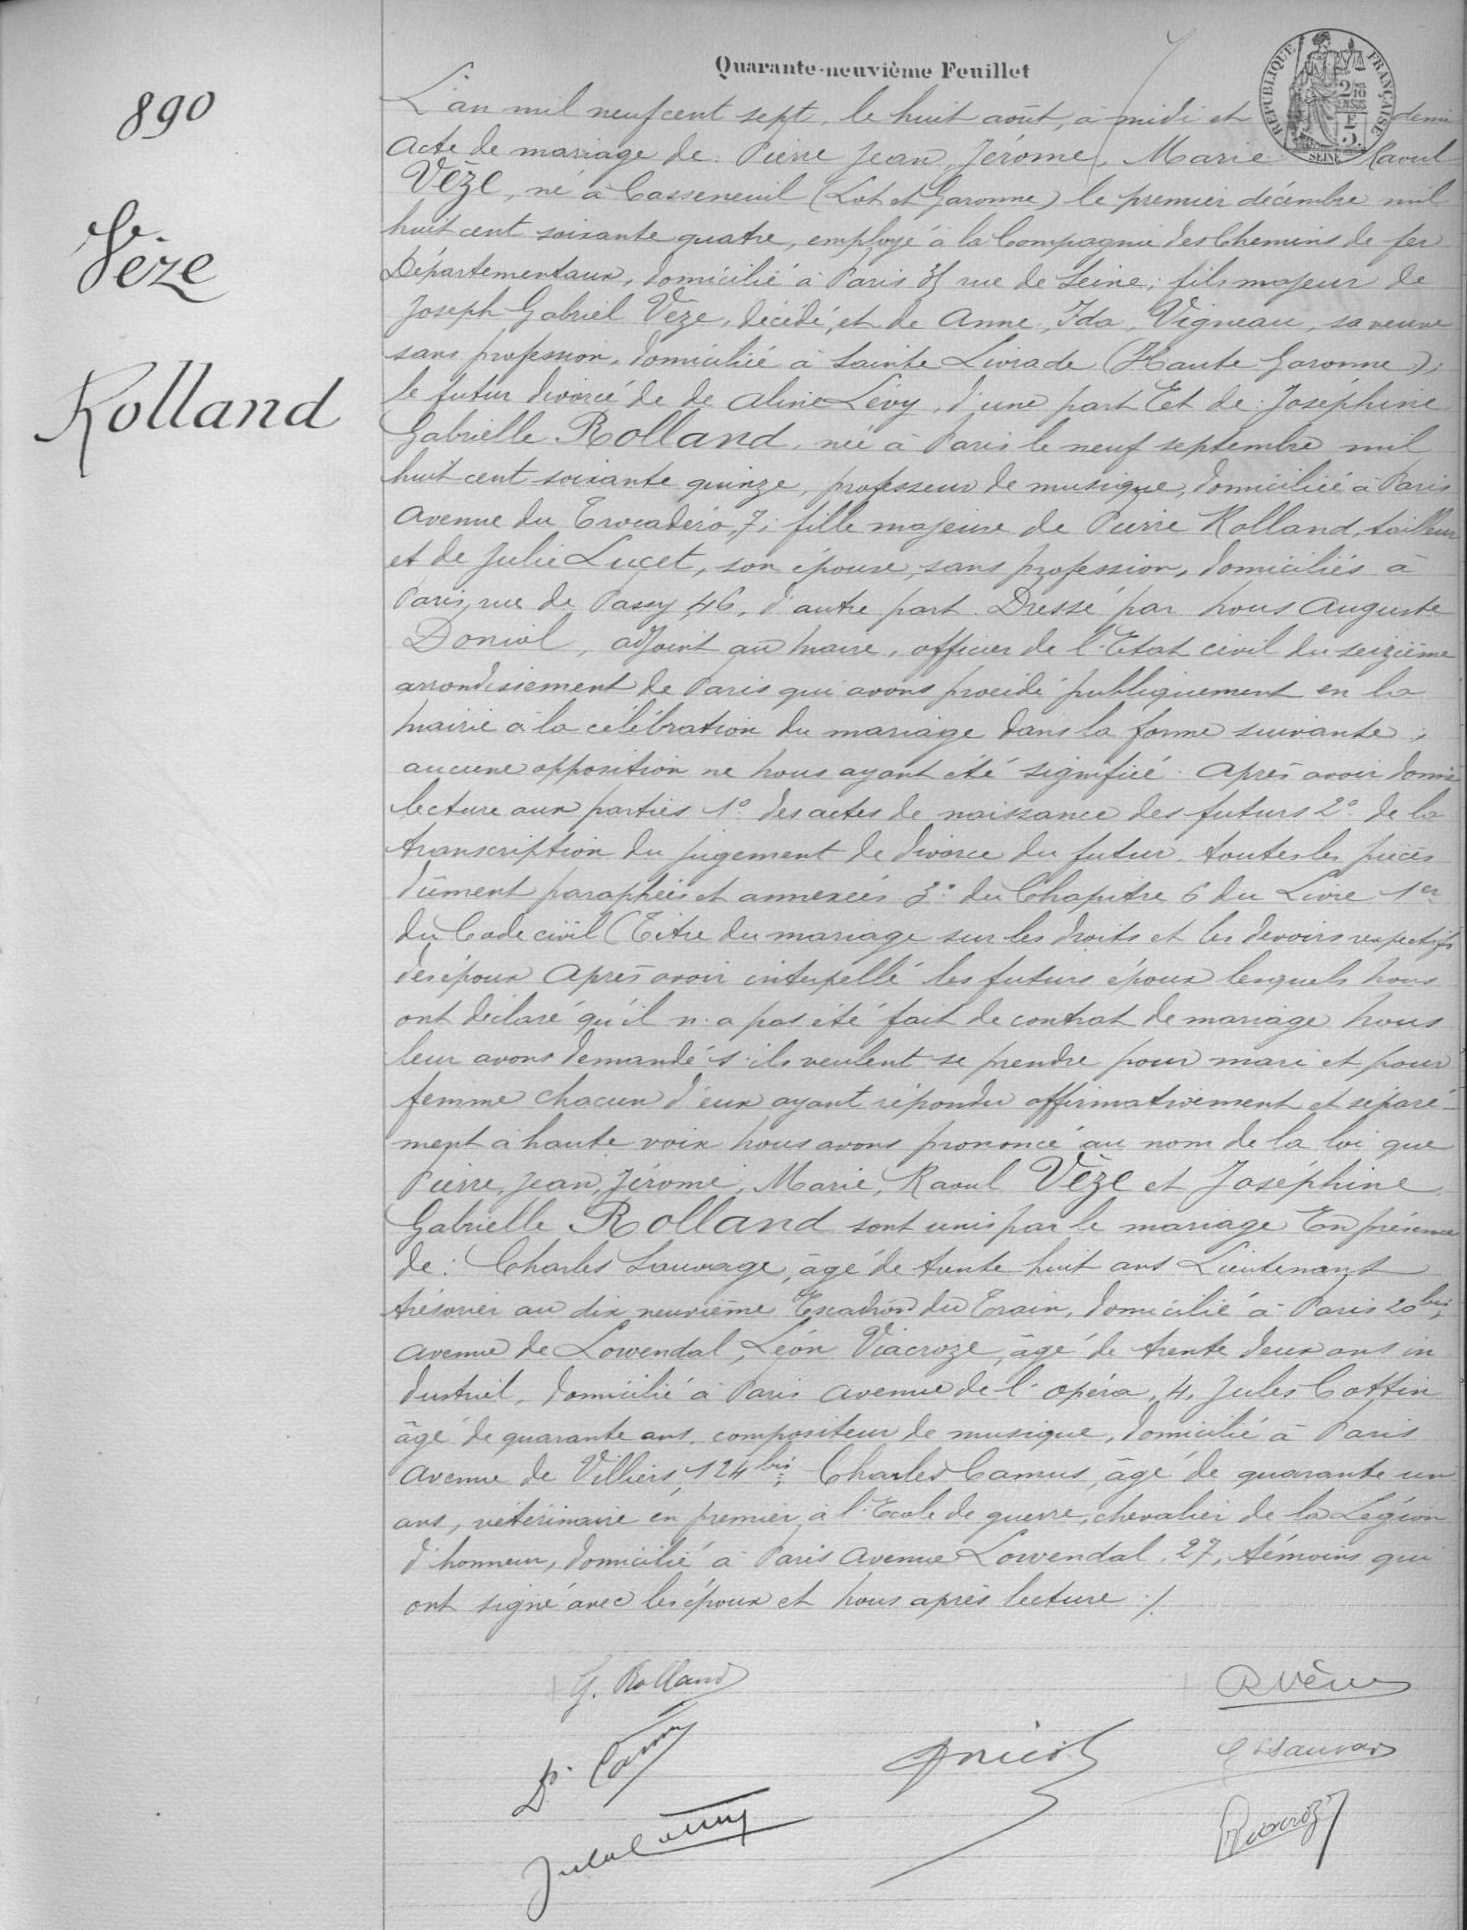 Quarante-neuvième Feuillet
RÉPUBLIQUE FRANÇAISE
SEINE
890
Vèze
Rolland
L'an mil neuf cent sept, le huit août, à midi et demi
acte de mariage de : Pierre Jean, Jérome, Marie Raoul
Vèze, né à Casseneuil (Lot et Garonne) le premier décembre mil
huit cent soixante quatre, employé à la Compagnie des Chemins de fer
Départementaux, domicilié à Paris rue de Seine ; fils majeur de
Joseph Gabriel Vèze, décédé, et de Anne, Ida, Vigneau, sa veuve
sans profession, domiciliée à Sainte Livrade (Haute Garonne) ;
le futur divorcé de de Aline Lévy, d'une part Et de : Joséphine
Gabrielle Rolland, née à Paris le neuf septembre mil
huit cent soixante quinze, professeur de musique, domiciliée à Paris
avenue du Trocadéro, 7 ; fille majeure de Pierre Rolland, tailleur
et de Julie Lucet, son épouse, sans profession, domiciliés à
Paris, rue de Passy, 46, d'autre part. Dressé par nous Auguste
Doniol, adjoint au maire, officier de l'Etat civil du seizième
arrondissement de Paris qui avons procédé publiquement en la
mairie à la célébration du mariage dans la forme suivante,
aucune opposition ne nous ayant été signifiée. Après avoir donné
lecture aux parties 1° des actes de naissance des futurs 2° de la
transcription du jugement de divorce du futur, toutes les pièces
dûment paraphées et annexées 3° du Chapitre 6 du Livre 1er
du Code civil (Titre du mariage sur les droits et les devoirs respectifs
des époux Après avoir interpellé les futurs époux lesquels nous
ont déclaré qu'il n'a pas été fait de contrat de mariage nous
leur avons demandé s'ils veulent se prendre pour mari et pour
femme chacun d'eux ayant répondu affirmativement et séparé-
ment à haute voix nous avons prononcé au nom de la loi que
Pierre, Jean, Jérome, Marie, Raoul Vèze et Joséphine,
Gabrielle Rolland sont unis par le mariage En présence
de : Charles Sauvage, âgé de trente huit ans Lieutenant
trésorier au dix neuvième Escadron du Train, domicilié à Paris 20 bis,
avenue de Lowendal, Léon Viacroze, âgé de trente deux ans in
dustriel, domicilié à Paris avenue de l'opéra, 4, Jules Cottin
âgé de quarante ans, compositeur de musique, domicilié à Paris
avenue de Villiers, 124 bis ; Charles Camus, âgé de quarante un
ans, vétérinaire en premier à l'Ecole de guerre, chevalier de la Légion
d'honneur, domicilié à Paris avenue Lowendal, 27, témoins qui
ont signé avec les époux et nous après lecture ./.
G. Rolland
R Vèze